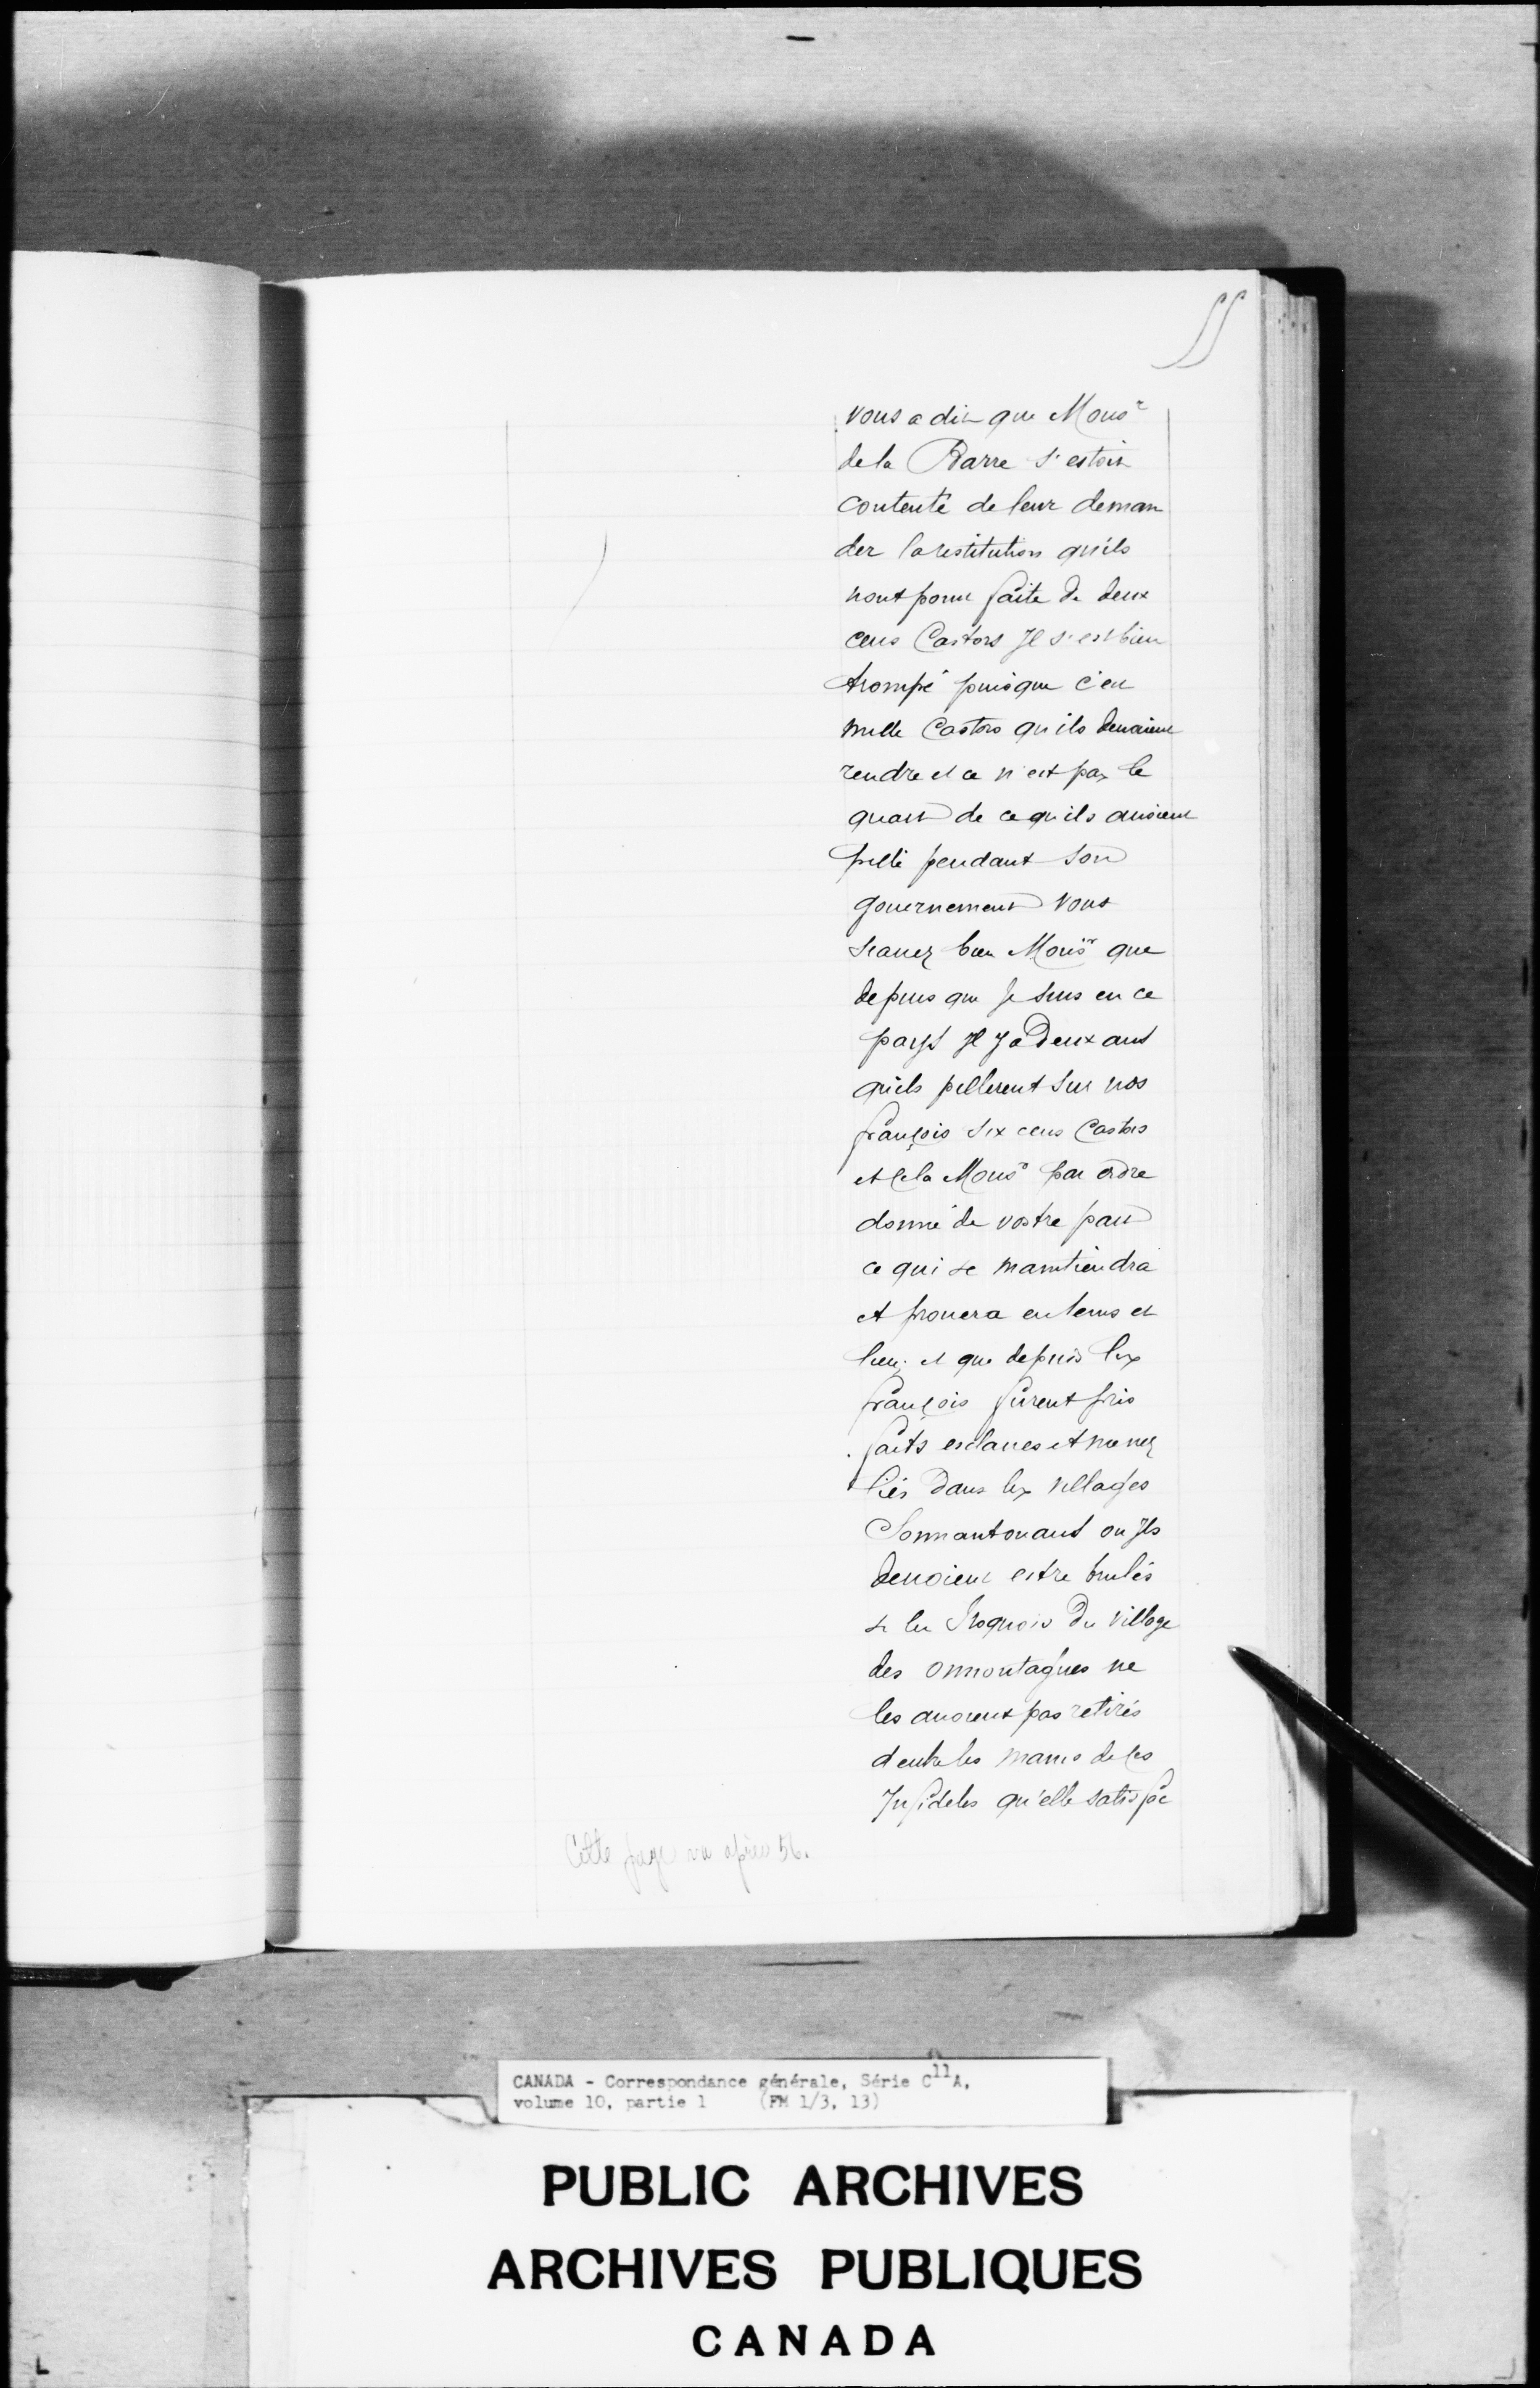 55
vous a dit que Monsr
de la Barre s'estoit
contenté de leur deman
der la restitution qu'ils
nont point faite de deux
cens Castors Il s'est bien
trompé puisque c'en
mille Castors qu'ils devoient
rendre et ce n'est pas le
quart de ce qu'ils avoient
pillé pendant son
gouvernement vous
scavez bien Monsr que
depuis que je suis en ce
pays Il y a deux ans
qu'ils pillerent sur nos
françois six cens Castors
et cela Monsr par ordre
donné de vostre part
ce qui se maintiendra
et prouvera en tems et
lieu; et que depuis les
françois furent pris
faits esclaves et menez
liés dans les villages
Sonnantouans ou Ils
devoient estre brulés
si les Iroquois du village
des onnontagues ne
les avoient pas retirés
d'entre les mains de ces
Infideles qu'elle satisfac
Cette page va après 56.
CANADA - Correspondance générale, Série C11A,
volume 10, partie 1 (FM 1/3, 13)
PUBLIC ARCHIVES
ARCHIVES PUBLIQUES
CANADA
L